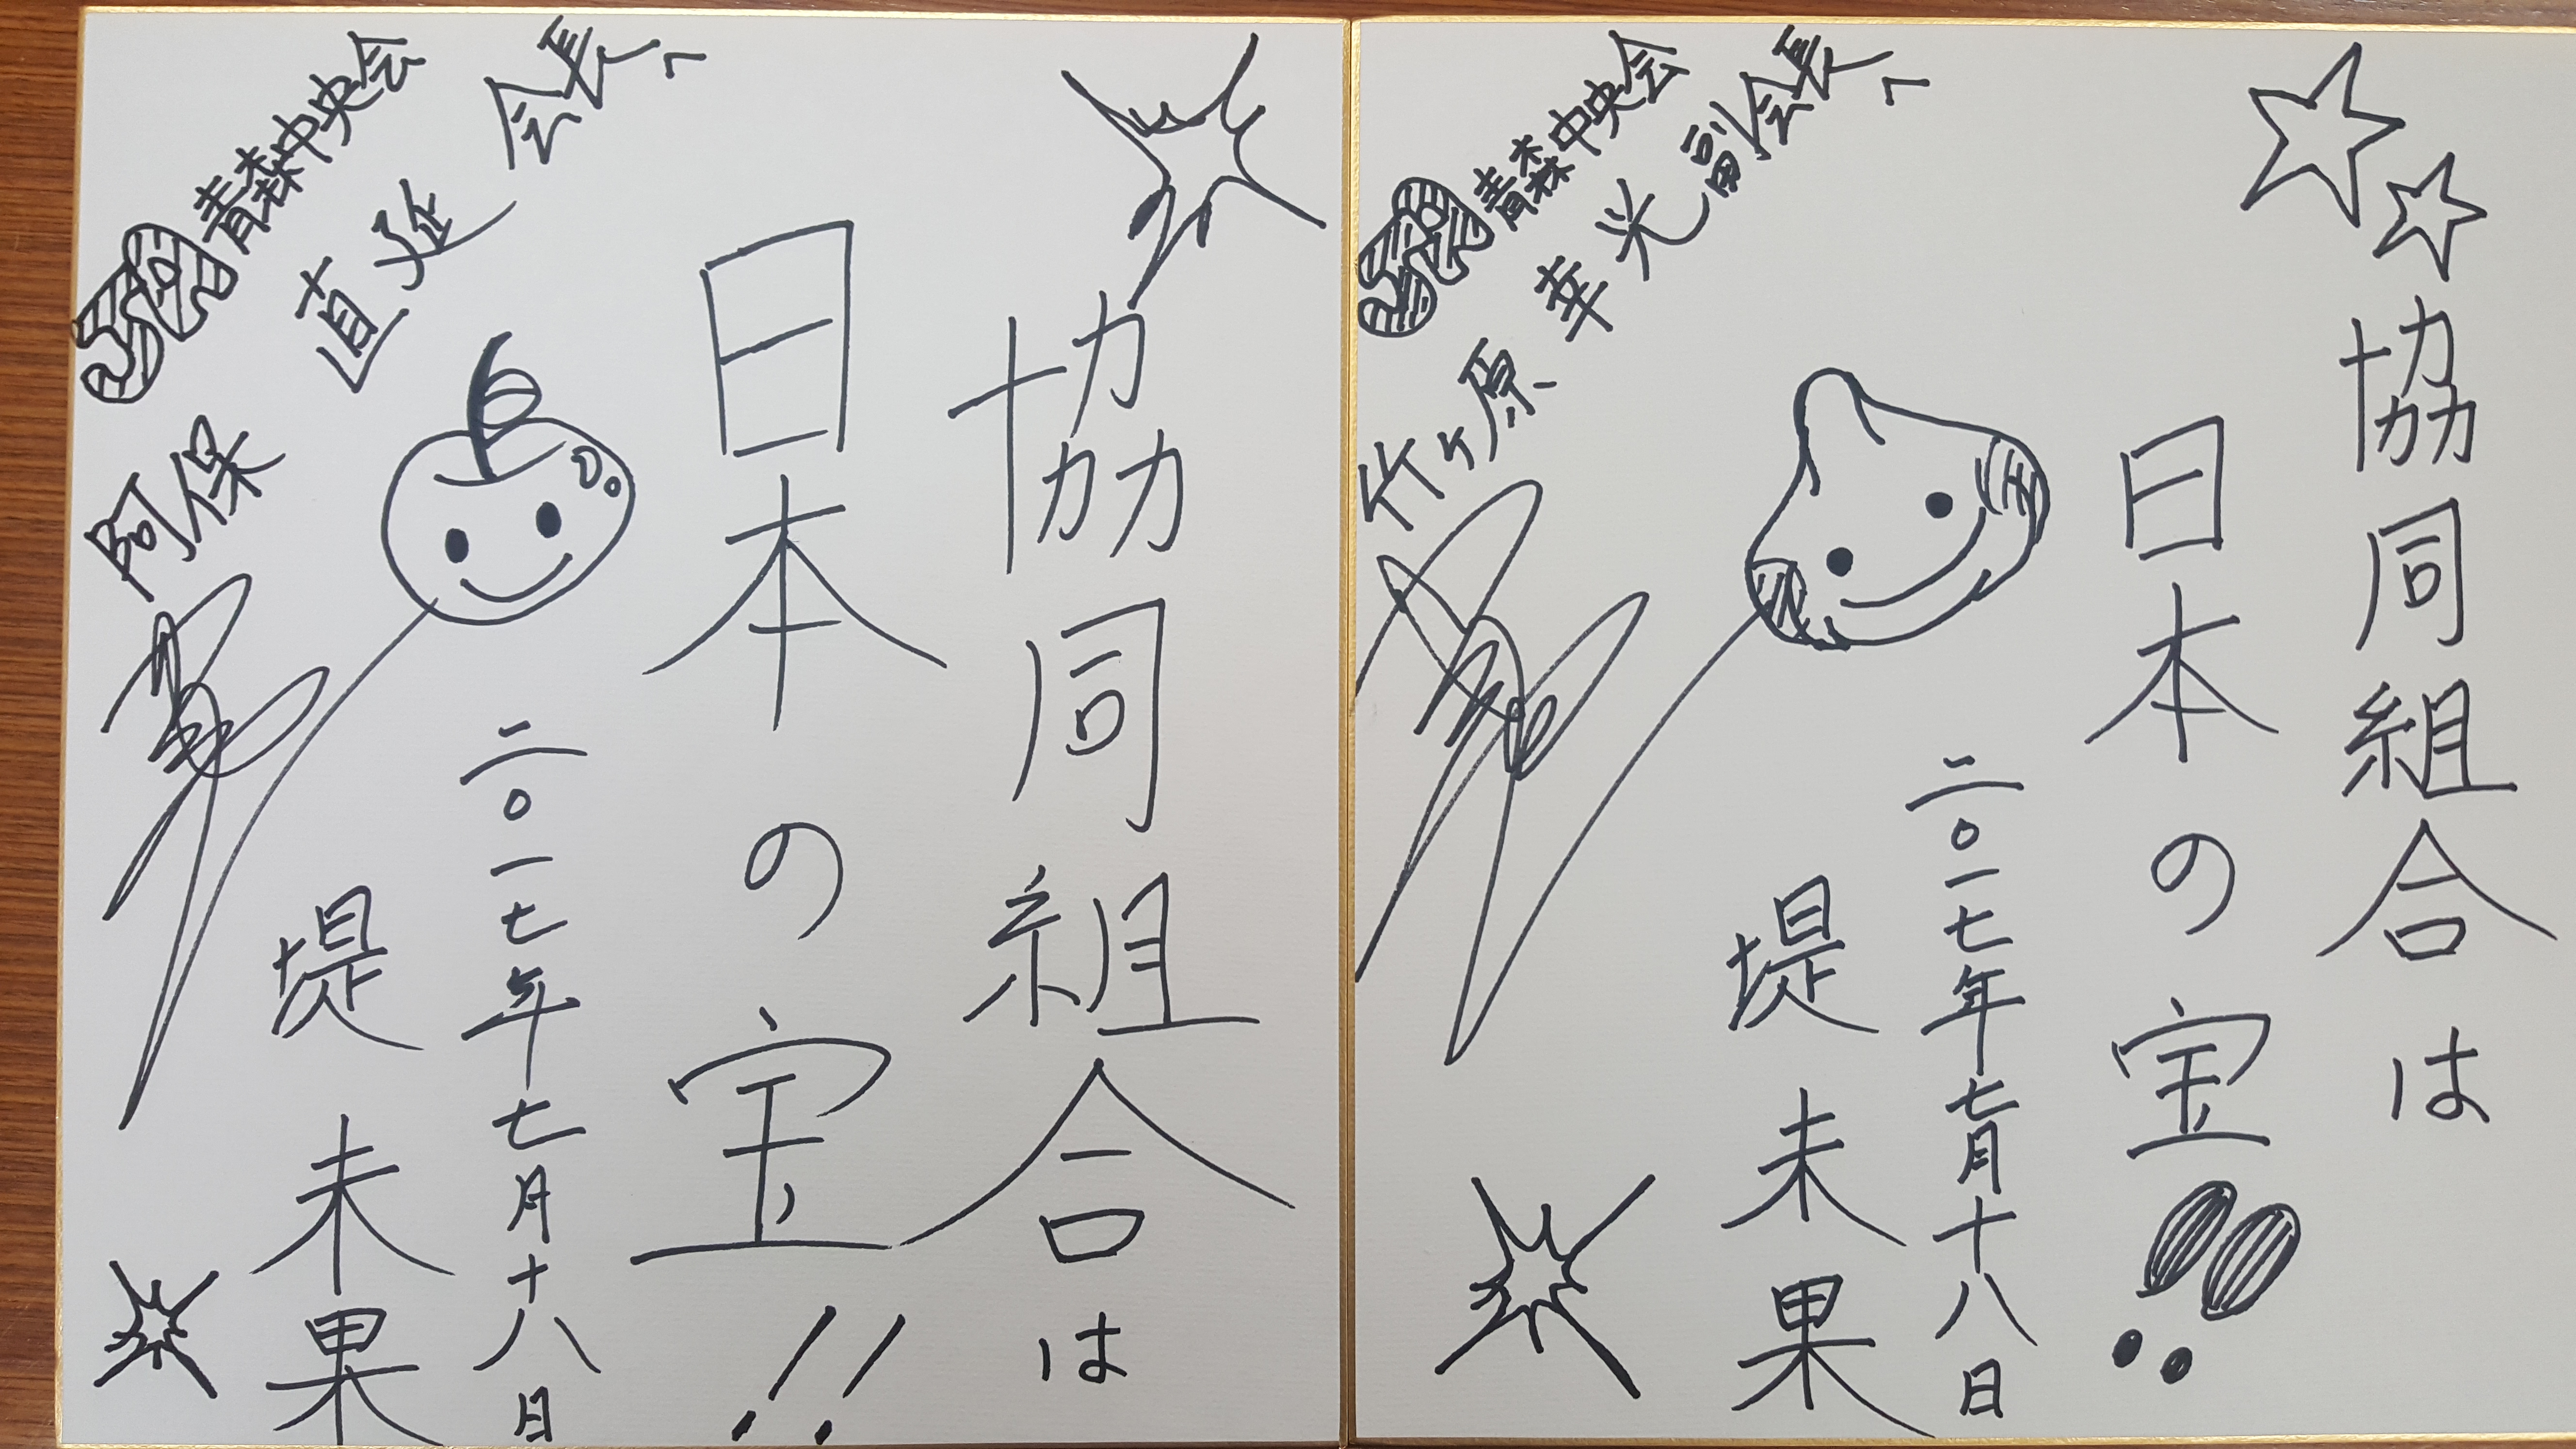 協同組合は
日本の宝!!
二〇一七年七月十八日
堤未果
JA青森中央会
阿保直延会長へ
協同組合は
日本の宝!!
二〇一七年七月十八日
堤未果
JA青森中央会
竹ヶ原幸光副会長へ